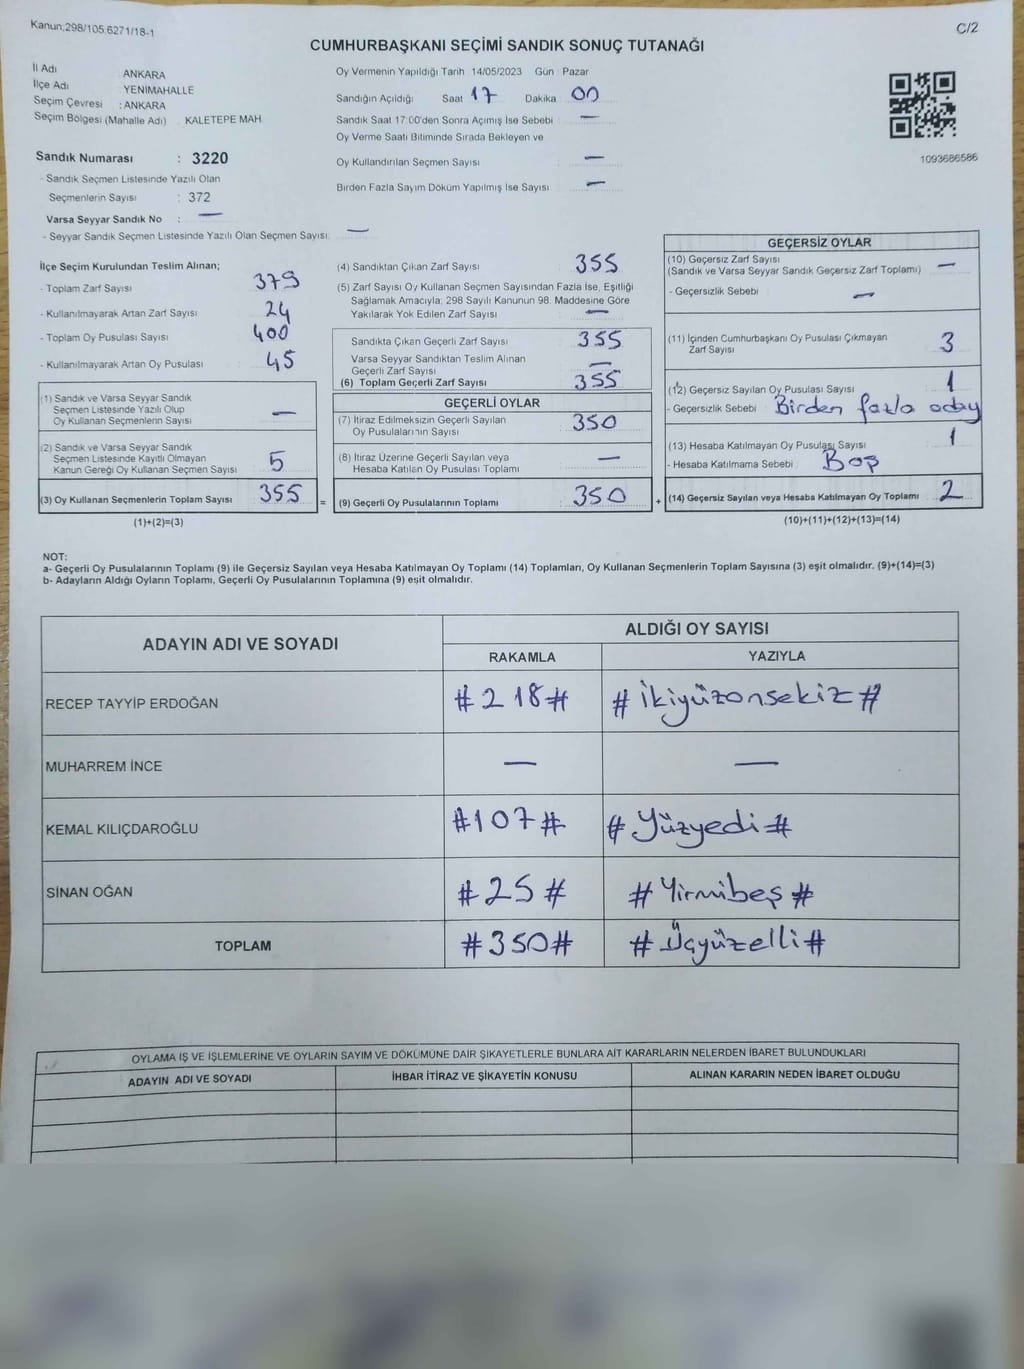 Kanun,298/105,6271/18-1
C/2
CUMHURBAŞKANI SEÇİMİ SANDIK SONUÇ TUTANAĞI
İl Adı ANKARA
İlçe Adı YENİMAHALLE
Seçim Çevresi : ANKARA
Seçim Bölgesi (Mahalle Adı) KALETEPE MAH.
Sandık Numarası : 3220
- Sandık Seçmen Listesinde Yazılı Olan
Seçmenlerin Sayısı : 372
Varsa Seyyar Sandık No : —
- Seyyar Sandık Seçmen Listesinde Yazılı Olan Seçmen Sayısı: —
Oy Vermenin Yapıldığı Tarih 14/05/2023 Gün Pazar
Sandığın Açıldığı Saat 17 Dakika 00
Sandık Saat 17:00'den Sonra Açımış İse Sebebi —
Oy Verme Saati Bitiminde Sırada Bekleyen ve
Oy Kullandırılan Seçmen Sayısı —
Birden Fazla Sayım Döküm Yapılmış İse Sayısı —
1093686586
İlçe Seçim Kurulundan Teslim Alınan;
- Toplam Zarf Sayısı 379
- Kullanılmayarak Artan Zarf Sayısı 24
- Toplam Oy Pusulası Sayısı 400
- Kullanılmayarak Artan Oy Pusulası 45
(1) Sandık ve Varsa Seyyar Sandık
Seçmen Listesinde Yazılı Olup
Oy Kullanan Seçmenlerin Sayısı —
(2) Sandık ve Varsa Seyyar Sandık
Seçmen Listesinde Kayıtlı Olmayan
Kanun Gereği Oy Kullanan Seçmen Sayısı 5
(3) Oy Kullanan Seçmenlerin Toplam Sayısı 355 =
(1)+(2)=(3)
(4) Sandıktan Çıkan Zarf Sayısı 355
(5) Zarf Sayısı Oy Kullanan Seçmen Sayısından Fazla İse, Eşitliği
Sağlamak Amacıyla, 298 Sayılı Kanunun 98. Maddesine Göre
Yakılarak Yok Edilen Zarf Sayısı —
Sandıkta Çıkan Geçerli Zarf Sayısı 355
Varsa Seyyar Sandıktan Teslim Alınan
Geçerli Zarf Sayısı —
(6) Toplam Geçerli Zarf Sayısı 355
GEÇERLİ OYLAR
(7) İtiraz Edilmeksizin Geçerli Sayılan
Oy Pusulalarının Sayısı 350
(8) İtiraz Üzerine Geçerli Sayılan veya
Hesaba Katılan Oy Pusulası Toplamı —
(9) Geçerli Oy Pusulalarının Toplamı : 350 +
GEÇERSİZ OYLAR
(10) Geçersiz Zarf Sayısı
(Sandık ve Varsa Seyyar Sandık Geçersiz Zarf Toplamı) —
- Geçersizlik Sebebi —
(11) İçinden Cumhurbaşkanı Oy Pusulası Çıkmayan
Zarf Sayısı 3
(12) Geçersiz Sayılan Oy Pusulası Sayısı 1
- Geçersizlik Sebebi Birden fazla aday
(13) Hesaba Katılmayan Oy Pusulası Sayısı 1
- Hesaba Katılmama Sebebi Boş
(14) Geçersiz Sayılan veya Hesaba Katılmayan Oy Toplamı 2
(10)+(11)+(12)+(13)=(14)
NOT:
a- Geçerli Oy Pusulalarının Toplamı (9) ile Geçersiz Sayılan veya Hesaba Katılmayan Oy Toplamı (14) Toplamları, Oy Kullanan Seçmenlerin Toplam Sayısına (3) eşit olmalıdır. (9)+(14)=(3)
b- Adayların Aldığı Oyların Toplamı, Geçerli Oy Pusulalarının Toplamına (9) eşit olmalıdır.
ADAYIN ADI VE SOYADI
ALDIĞI OY SAYISI
RAKAMLA YAZIYLA
RECEP TAYYİP ERDOĞAN #218# #İkiyüzonsekiz#
MUHARREM İNCE — —
KEMAL KILIÇDAROĞLU #107# #Yüzyedi#
SİNAN OĞAN #25# #Yirmibeş#
TOPLAM #350# #Üçyüzelli#
OYLAMA İŞ VE İŞLEMLERİNE VE OYLARIN SAYIM VE DÖKÜMÜNE DAİR ŞİKAYETLERLE BUNLARA AİT KARARLARIN NELERDEN İBARET BULUNDUKLARI
ADAYIN ADI VE SOYADI İHBAR İTİRAZ VE ŞİKAYETİN KONUSU ALINAN KARARIN NEDEN İBARET OLDUĞU